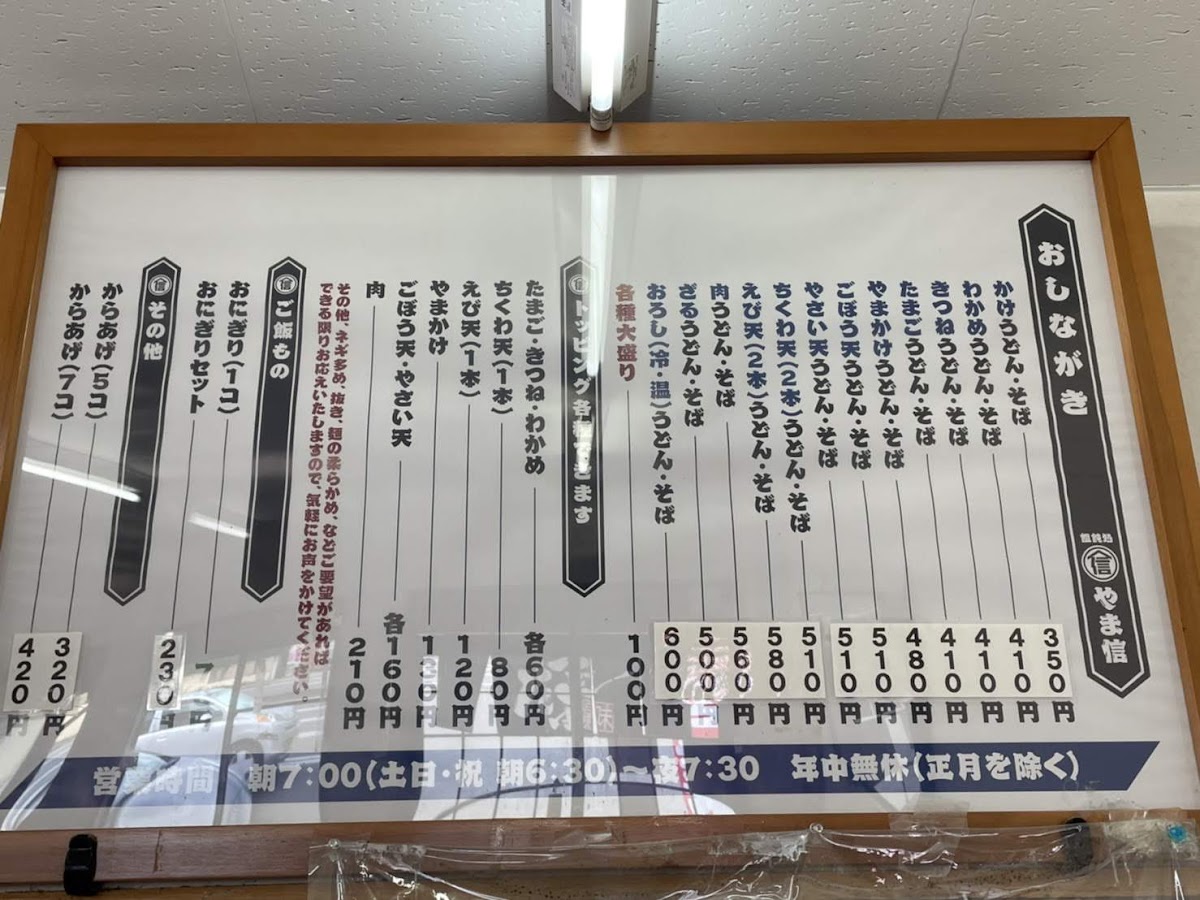 おしながき 饂飩処 信 やま信
かけうどん・そば 350円
わかめうどん・そば 410円
きつねうどん・そば 410円
たまごうどん・そば 410円
やまかけうどん・そば 480円
ごぼう天うどん・そば 510円
やさい天うどん・そば 510円
ちくわ天(2本)うどん・そば 510円
えび天(2本)うどん・そば 580円
肉うどん・そば 560円
ざるうどん・そば 500円
おろし(冷・温)うどん・そば 600円
各種大盛り 100円
信 トッピング各種できます
たまご・きつね・わかめ 各60円
ちくわ天(1本) 80円
えび天(1本) 120円
やまかけ 130円
ごぼう天・やさい天 各160円
肉 210円
その他、ネギ多め、抜き、麺の柔らかめ、などご要望があれば
できる限りお応えいたしますので、気軽にお声をかけてください。
信 ご飯もの
おにぎり(1コ) 円
おにぎりセット 230円
信 その他
からあげ(5コ) 320円
からあげ(7コ) 420円
営業時間 朝7:00(土日・祝 朝6:30)～夜7:30 年中無休(正月を除く)